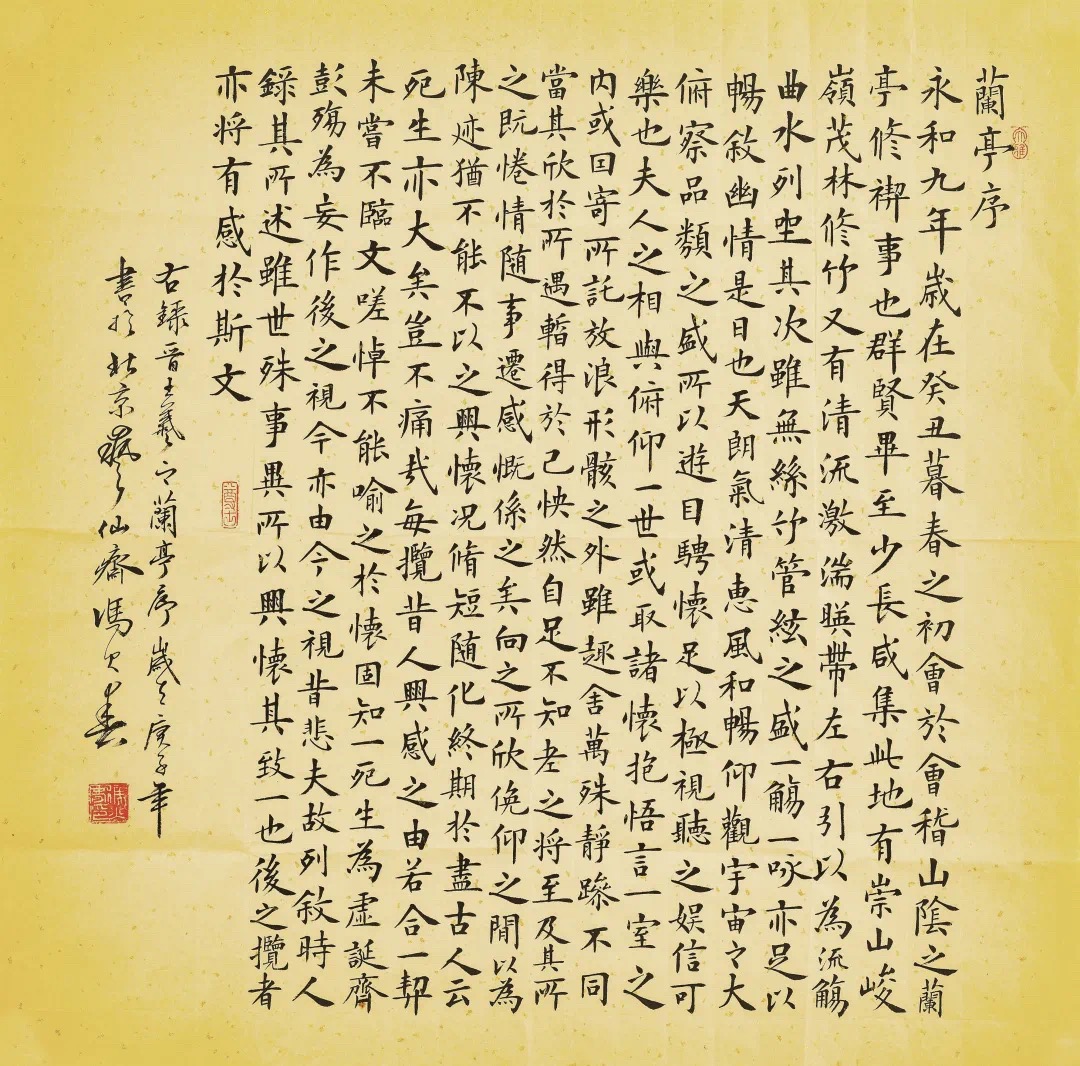 蘭亭序
永和九年歲在癸丑暮春之初會於會稽山陰之蘭
亭修禊事也群賢畢至少長咸集此地有崇山峻
嶺茂林修竹又有清流激湍暎帶左右引以為流觴
曲水列坐其次雖無絲竹管絃之盛一觴一咏亦足以
暢敘幽情是日也天朗氣清惠風和暢仰觀宇宙之大
俯察品類之盛所以遊目騁懷足以極視聽之娛信可
樂也夫人之相與俯仰一世或取諸懷抱悟言一室之
内或因寄所託放浪形骸之外雖趣舍萬殊靜躁不同
當其欣於所遇暫得於己怏然自足不知老之將至及其所
之既惓情隨事遷感慨係之矣向之所欣俛仰之間以為
陳迹猶不能不以之興懷况脩短隨化終期於盡古人云
死生亦大矣豈不痛哉每攬昔人興感之由若合一契
未嘗不臨文嗟悼不能喻之於懷固知一死生為虛誕齊
彭殤為妄作後之視今亦由今之視昔悲夫故列敘時人
錄其所述雖世殊事異所以興懷其致一也後之攬者
亦將有感於斯文
右錄晉王羲之蘭亭序歲在庚子年
書於北京仙齋馮春